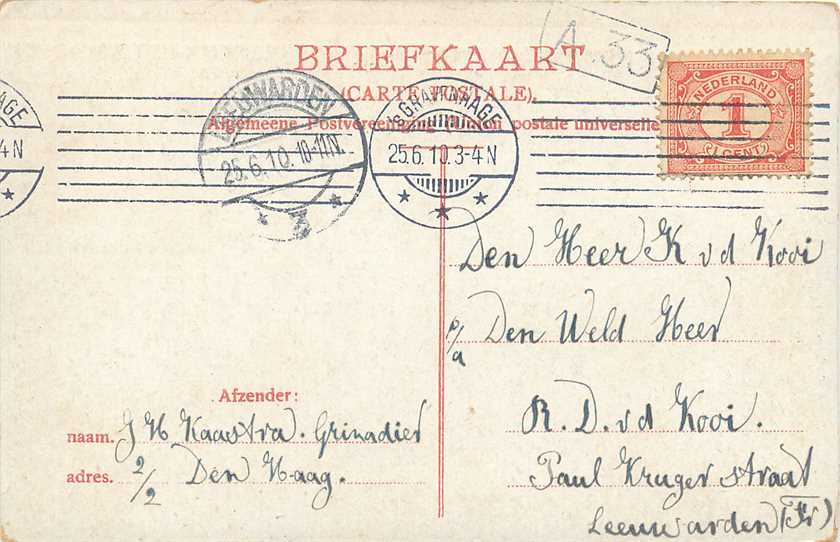 A. 33
BRIEFKAART
(CARTE POSTALE).
Algemeene Postvereeniging (Union postale universelle
NEDERLAND
1
(1 CENT)
AGE
4 N
LEEUWARDEN
25.6.10. 10-11 N.
3
'SGRAVENHAGE
25.6.10.3-4 N
Den Heer K v d Kooi
p/a Den Weld Heer
R. D. v d Kooi.
Paul Kruger straat
Leeuwarden (Fr)
Afzender:
naam. J H Kaastra. Grinadier
adres. 2/2 Den Haag.